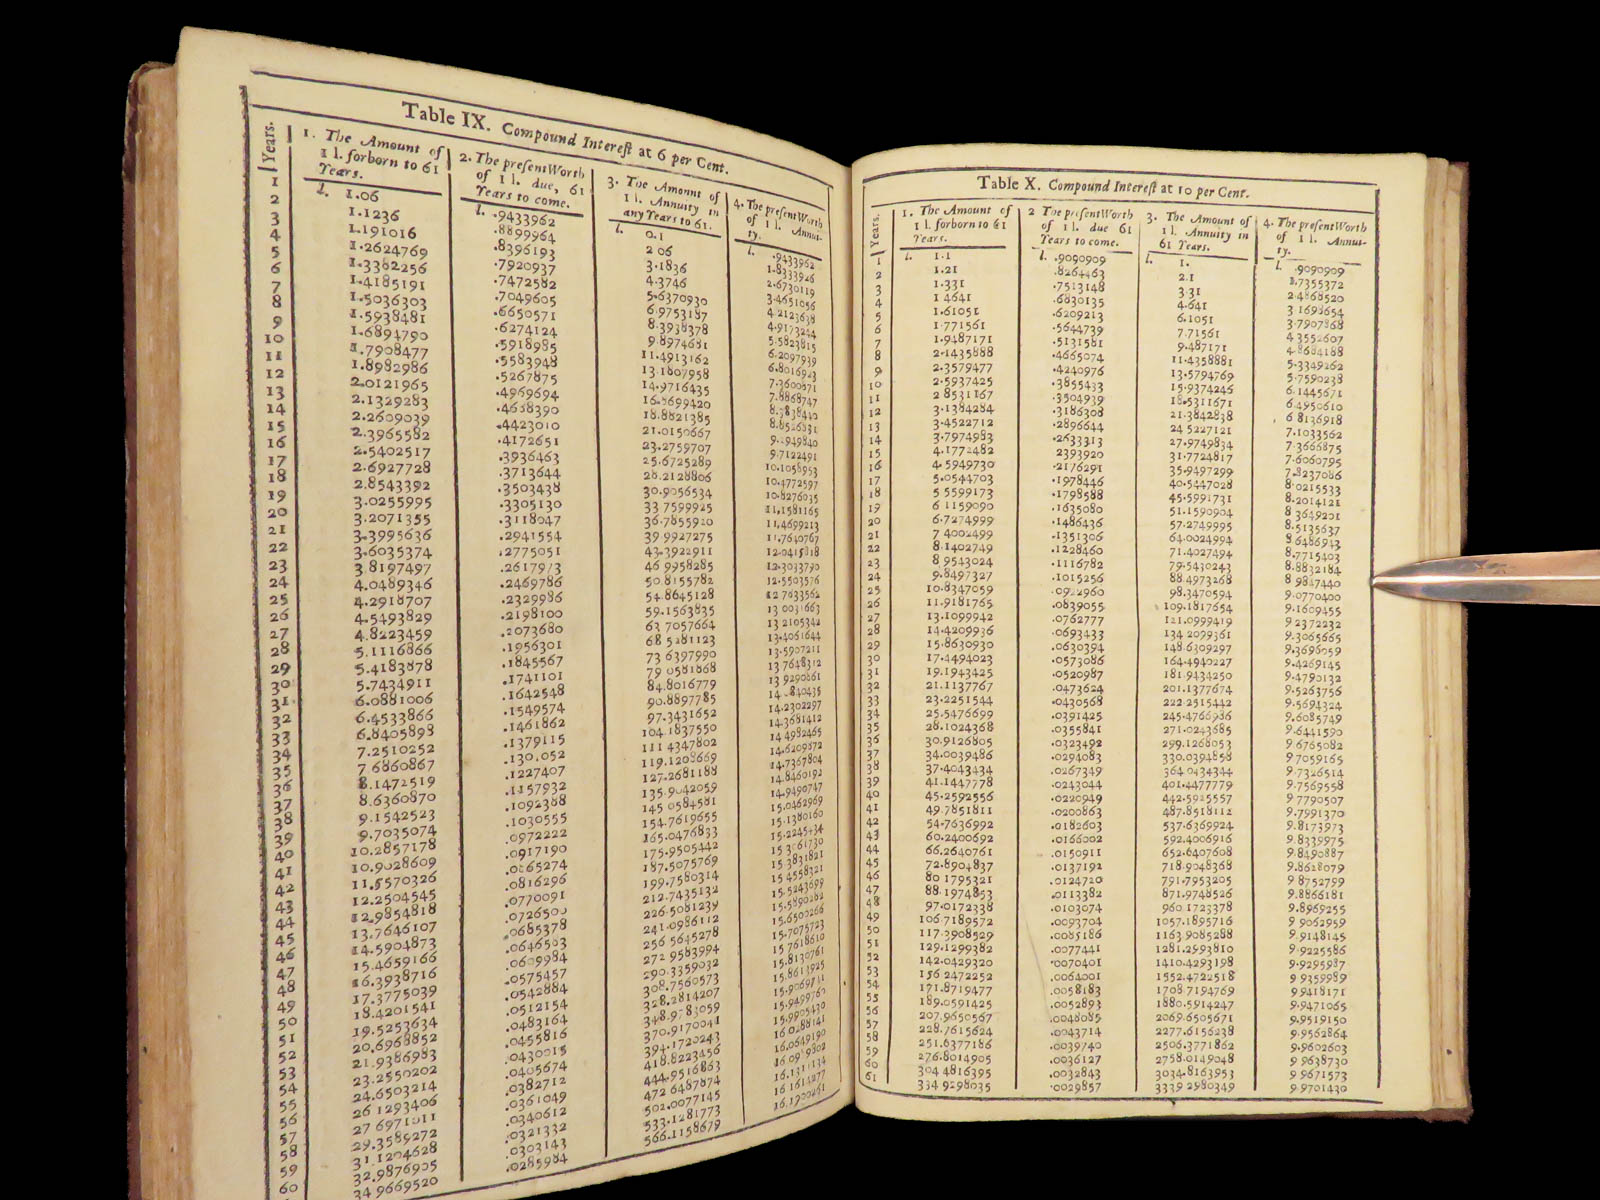 Table IX. Compound Interest at 6 per Cent.
Years. 1. The Amount of 1 l. forborn to 61 Years. 2. The present Worth of 1 l. due, 61 Years to come. 3. The Amount of 1 l. Annuity in any Years to 61. 4. The present Worth of 1 l. Annuity.
1 l. 1.06 l. .9433962 l. 0.1 l. .9433962
2 1.1236 .8899964 2 06 1.8333926
3 1.191016 .8396193 3.1836 2.6730119
4 1.2624769 .7920937 4.3746 3.4651056
5 1.3382256 .7472582 5.6370930 4.2123638
6 1.4185191 .7049605 6.9753187 4.9173244
7 1.5036303 .6650571 8.3938378 5.5823815
8 1.5938481 .6274124 9.8974681 6.2097939
9 1.6894790 .5918985 11.4913162 6.8016923
10 1.7908477 .5583948 13.1807958 7.3600871
11 1.8982986 .5267875 14.9716435 7.8868747
12 2.0121965 .4969694 16.8699420 8.3838440
13 2.1329283 .4688390 18.8821385
14 2.2609039 .4423010 21.0150667
15 2.3965582 .4172651 23.2759707 9.7122491
16 2.5402517 .3936463 25.6725289 10.1058953
17 2.6927728 .3713644 28.2128806 10.4772597
18 2.8543392 .3503438 30.9056534 10.8276035
19 3.0255995 .3305130 33 7599925 11.1581165
20 3.2071355 .3118047 36.7855920 11.4699213
21 3.3995636 .2941554 39 9927275 11.7640767
22 3.6035374 .2775051 43.3922911 12.0415818
23 3 8197497 .2617973 46 9958285 12.3033790
24 4.0489346 .2469786 50.8155782 12.5503576
25 4.2918707 .2329986 54.8645128 12 7833562
26 4.5493829 .2198100 59.1563835 13 0031663
27 4.8223459 .2073680 63 7057664 13 2105342
28 5.1116866 .1956301 68 5281123 13.4061644
29 5.4183878 .1845567 73 6397990 13.5907211
30 5.7434911 .1741101 79 0581868 13 7648312
31 6.0881006 .1642548 84.8016779 13 9290861
32 6.4533866 .1549574 90.8897785
33 6.8405898 .1461862 97.3431652 14.2302297
34 7.2510252 .1379115 104.1837550 14.3681412
35 7 6860867 .130.052 111 4347802 14 4982465
36 8.1472519 .1227407 119.1208669 14.6209872
37 8.6360870 .1157932 127.2681188 14.7367804
38 9.1542523 .1092388 135.9042059 14.8460192
39 9.7035074 .1030555 145 0584581 14.9490747
40 10.2857178 .0972222 154.7619655 15.0462969
41 10.9028609 .0917190 165.0476833 15.1380160
42 11.5570326 .0865274 175.9505442
43 12.2504545 .0816296 187.5075769
44 12.9854818 .0770091 199.7580314 15 3831821
45 13.7646107 .0726500 212.7435132 15 4558321
46 14.5904873 .0685378 226.5081239 15.5243699
47 15.4659166 .0646583 241.0986112 15.5890282
48 16.3938716 .0609984 256 5645278 15.6500266
49 17.3775039 .0575457 272 9583994 15.7075723
50 18.4201541 .0542884 290.3359032 15 7618610
51 19.5253634 .0512154 308.7560573 15.8130761
52 20.6968852 .0483164 328.2814207 15.8613925
53 21.9386983 .0455816 348.9783059
54 23.2550202 .0430015 370.9170041 15.9499760
55 24.6503214 .0405674 394.1720243 15.9905430
56 26 1293406 .0382712 418.8223456 16.0288141
57 27 6971011 .0361049 444.9516863 16.0649190
58 29.3589272 .0340612 472 6487874
59 31.1204628 .0321332 502.0077145
60 32.9876905 .0303143 533.1281773 16 1614277
34 9669520 .0285984 566.1158679
Table X. Compound Interest at 10 per Cent.
Years. 1. The Amount of 1 l. forborn to 61 Years. 2 The present Worth of 1 l. due 61 Years to come. 3. The Amount of 1 l. Annuity in 61 Years. 4. The present Worth of 1 l. Annuity.
1 l. 1.1 l. .9090909 l. 1. l. .9090909
2 1.21 .8264463 2.1 1.7355372
3 1.331 .7513148 3.31 2.4868520
4 1 4641 .6830135 4.641 3.1698654
5 1.61051 .6209213 6.1051 3.7907868
6 1.771561 .5644739 7.71561 4.3552607
7 1.9487171 .5131581 9.487171 4.8684188
8 2.1435888 .4665074 11.435888 1 5.3349262
9 2.3579477 .4240976 13.5794769 5.7590238
10 2.5937425 .3855433 15.9374246 6.1445671
11 2 8531167 .3504939 18.5311671 6.4950610
12 3.1384284 .3186308 21.3842838 6 8136918
13 3.4522712 .2896644 24 5227121 7.1033562
14 3.7974983 .2633313 27.9749834 7.3666875
15 4.1772482 2393920 31.7724817 7.6060795
16 4.5949730 .2176291 35.9497299 7.8237086
17 5.0544703 .1978446 40.5447028 8.0215533
18 5 5599173 .1798588 45.5991731 8.2014121
19 6 1159090 .1635080 51.1590904 8 3649201
20 6.7274999 .1486436 57.2749995 8.5135637
21 7 4002499 .1351306 64.0024994 8 6486943
22 8.1402749 .1228460 71.4027494 8.7715403
23 8 9543024 .1116782 79.5430243 8.8832184
24 9.8497327 .1015256 88 4973268 8 9847440
25 10.8347059 .0922960 98.3470594 9.0770400
26 11.9181765 .0839055 109.1817654 9.1609455
27 13.1099942 .0762777 121.0999419 9 2372232
28 14.4209936 .0693433 134 2099361 9.3065665
29 15.8630930 .0630394 148.6309297 9.3696059
30 17.4494023 .0573086 164.4940227 9.4269145
31 19.1943425 .0520987 181.9434250 9.4790132
32 21.1137767 .0473624 201.1377674 9.5263756
33 23.2251544 .0430568 222.2515442 9.5694324
34 25.5476699 .0391425 245.4766986 9.6085749
35 28.1024368 .0355841 271.0243685 9.6441590
36 30.9126805 .0323492 299.1268053 9 6765082
37 34.0039486 .0294083 330.0394858 9 7059165
38 37.4043434 .0267349 364 0434344 9.7326514
39 41.1447778 .0243044 401.4477779 9.7569558
40 45.2592556 .0220949 442.5925557 9.7790507
41 49.7851811 .0200863 487.8518112 9.7991370
42 54.7636992 .0182603 537.6369924 9.8173973
43 60.2400692 .0166002 592.4006916 9.8339975
44 66.2640761 .0150911 652.6407608 9.8490887
45 72.8904837 .0137192 718.9048368 9.8628079
46 80 1795321 .0124720 791.7953205 9 8752799
47 88.1974853 .0113382 871.9748526 9.8866181
48 97.0172338 .0103074 960 1723378 9.8969255
49 106.7189572 .0093704 1057.1895716 9 9062959
50 117.3908529 .0085186 1163.9085288 9.9148145
51 129.1299382 .0077441 1281.2993810 9.9225586
52 142.0429320 .0070401 1410.4293198 9.9295987
53 156 2472252 .0064001 1552.4722518 9 9359989
54 171.8719477 .0058183 1708 7194769 9 9418171
55 189.0591425 .0052893 1880.5914247 9.9471065
56 207.9650567 .0048085 2069.6505671 9.9519150
57 228.7615624 .0043714 2277.6156238 9.9562864
58 251.6377186 .0039740 2506.3771862 9.9602603
59 276.8014905 .0036127 2758.0149048 9 9638730
60 304 4816395 .0032843 3034.8163953 9 9671573
61 334 9298035 .0029857 3339 2980349 9.9701430